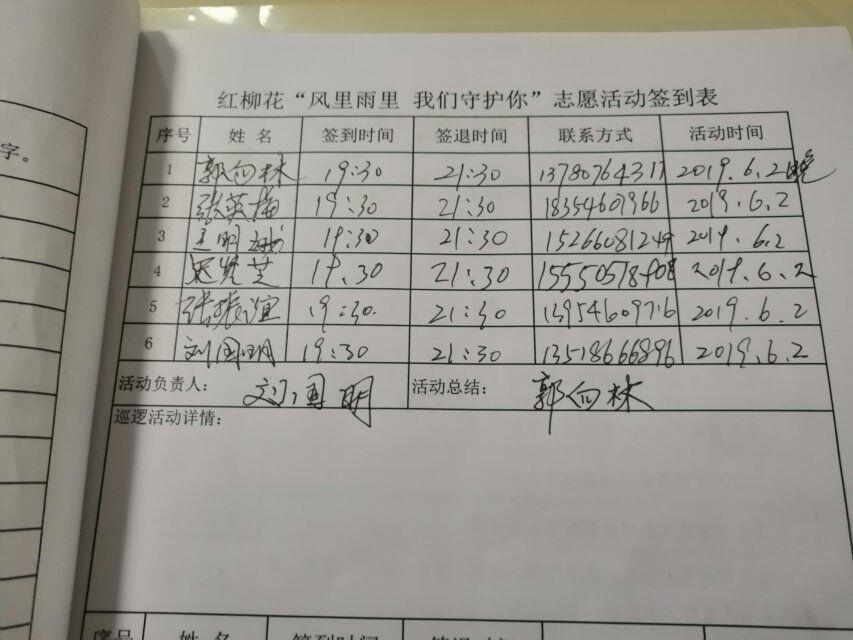 字。
红柳花“风里雨里 我们守护你”志愿活动签到表
序号 姓 名 签到时间 签退时间 联系方式 活动时间
1 郭向林 19:30 21:30 13780764317 2019.6.2晚
2 张英梅 19:30 21:30 18354601966 2019.6.2
3 王明 19:30 21:30 15266081249 2019.6.2
4 19:30 21:30 15550578408 2019.6.2
5 张振谊 19:30. 21:30 13954609716 2019.6.2
6 刘国明 19:30 21:30 13518666896 2019.6.2
活动负责人: 刘国明 活动总结: 郭向林
巡逻活动详情:
序号 姓 名 签到时间 签退时间